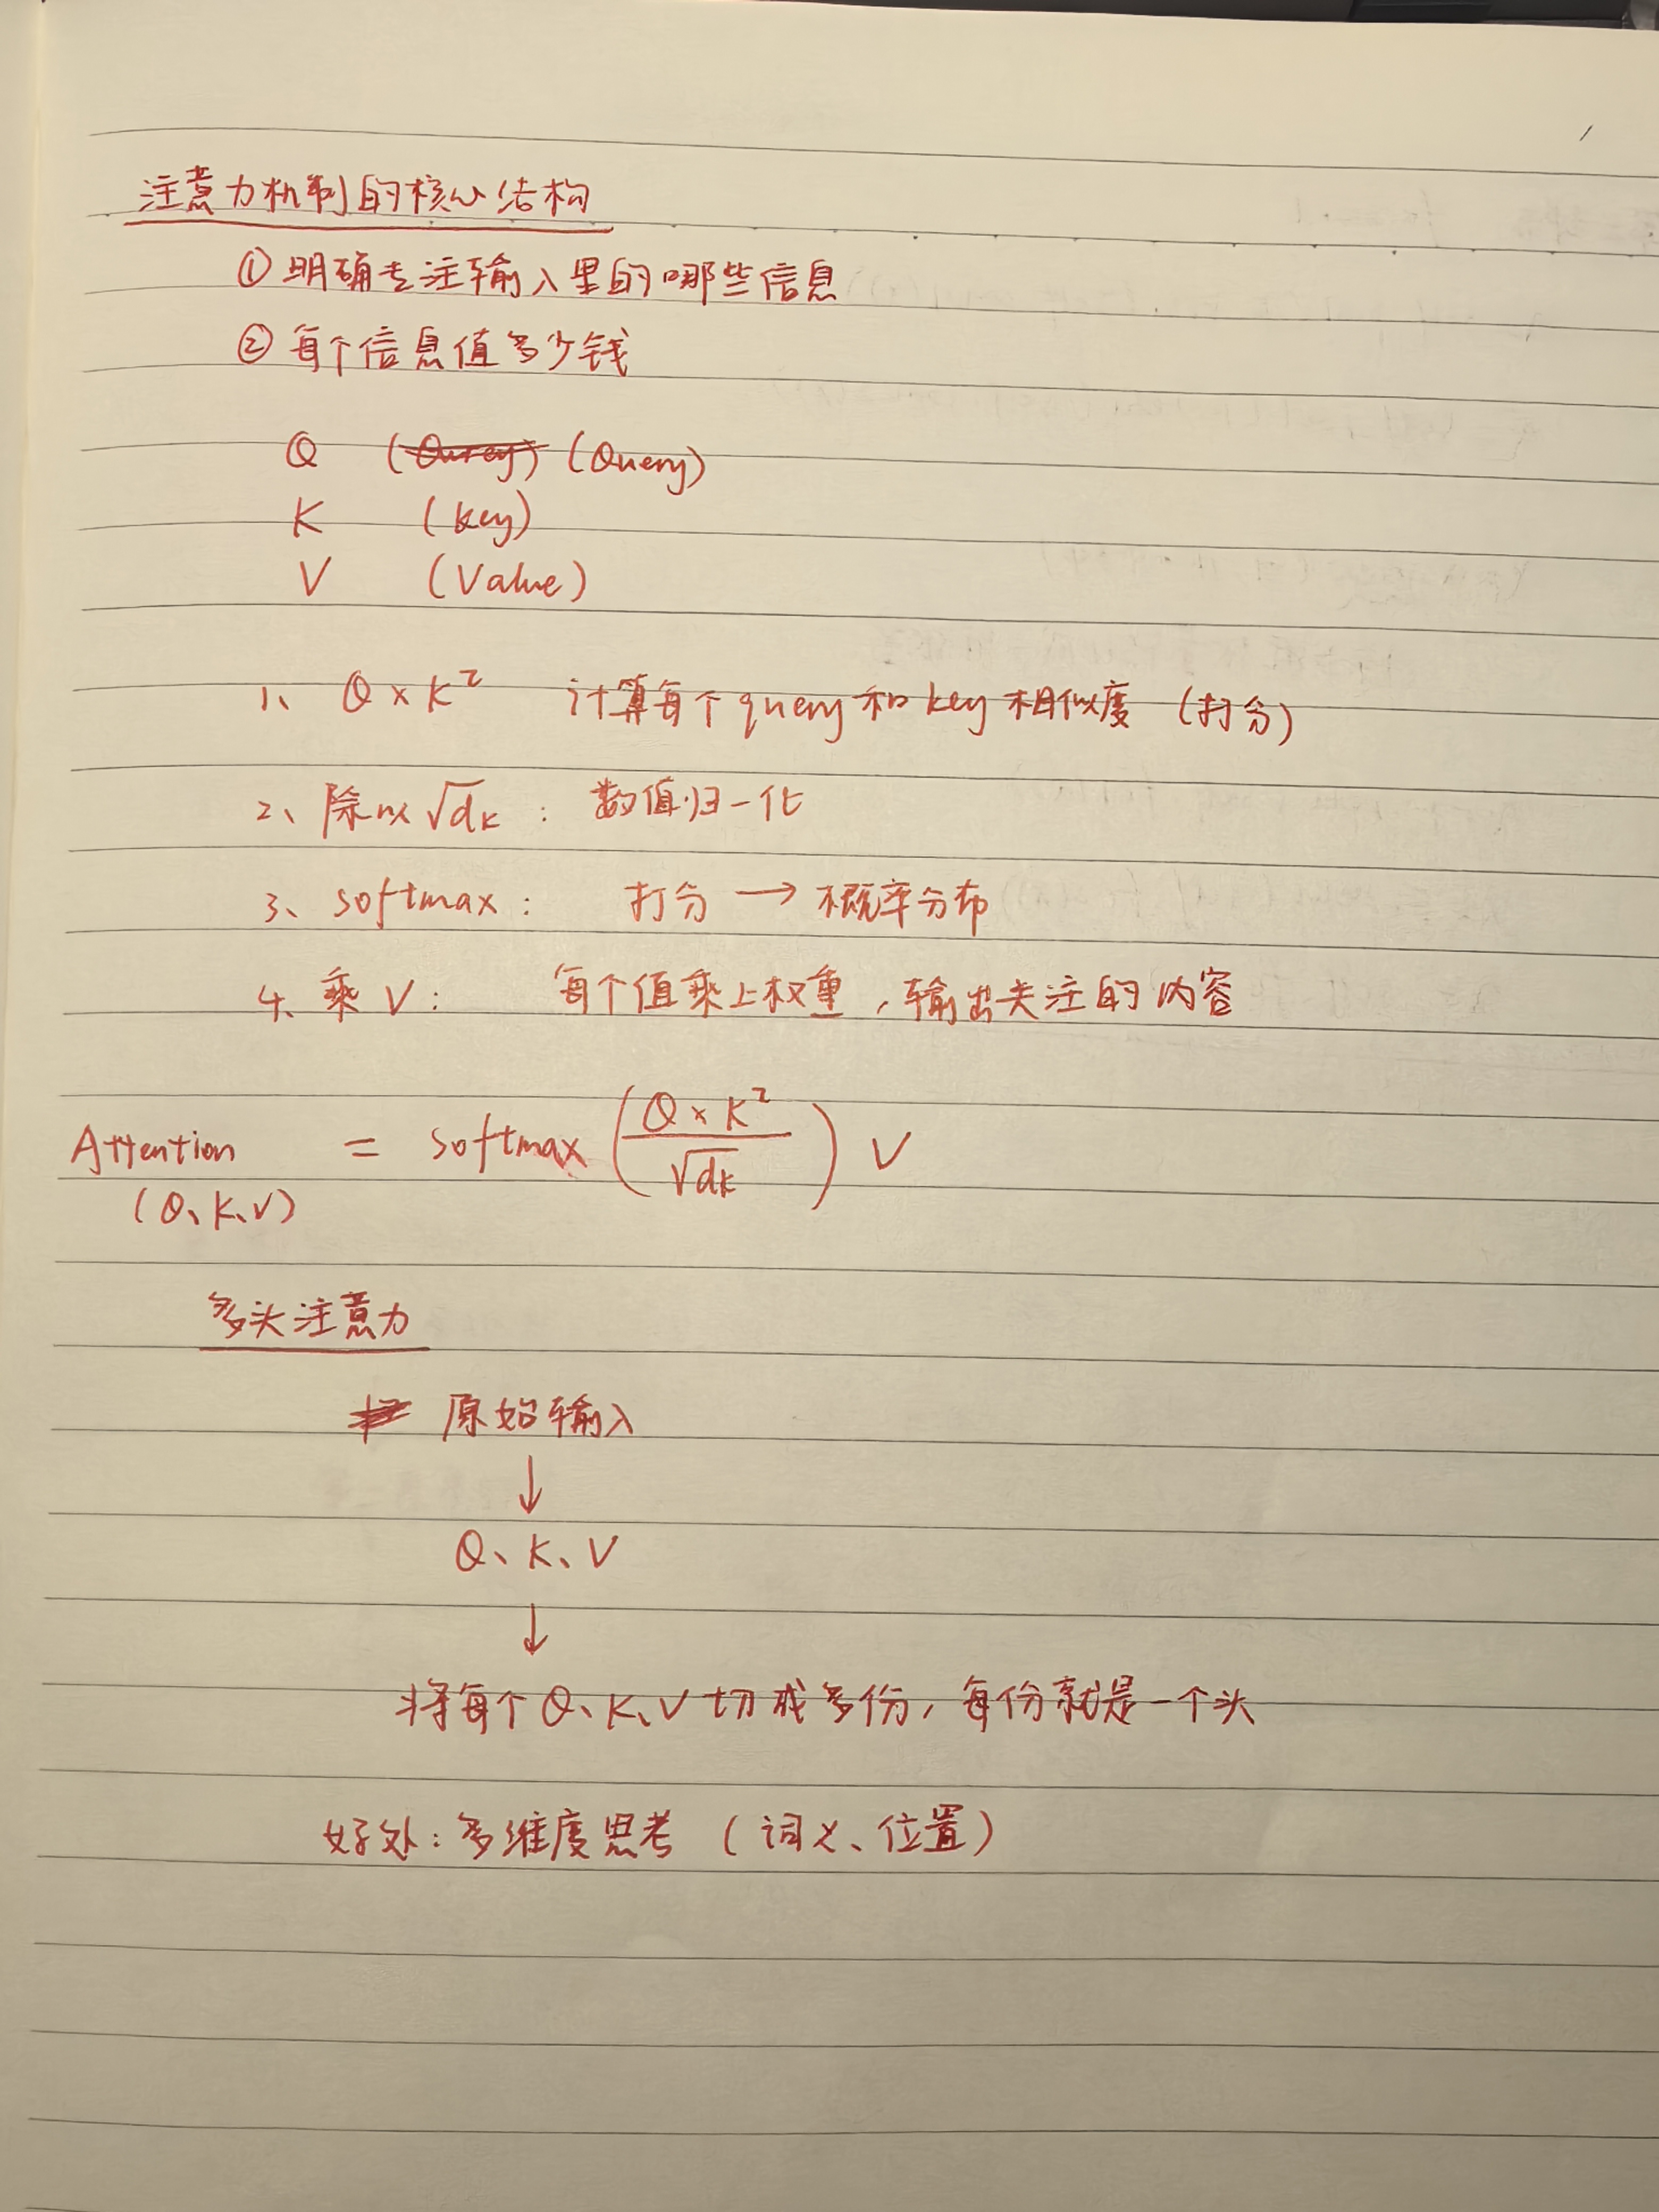 注意力机制的核心结构
① 明确专注输入里的哪些信息
② 每个信息值多少钱
Q (Qurey) (Query)
K (key)
V (Value)
1、Q × K² 计算每个query和key相似度 (打分)
2、除以√dk : 数值归一化
3、softmax : 打分 → 概率分布
4、乘V : 每个值乘上权重，输出关注的内容
Attention (Q、K、V) = softmax (Q × K² / √dk) V
多头注意力
原始输入
↓
Q、K、V
↓
将每个Q、K、V切成多份，每份就是一个头
好处：多维度思考 (词义、位置)